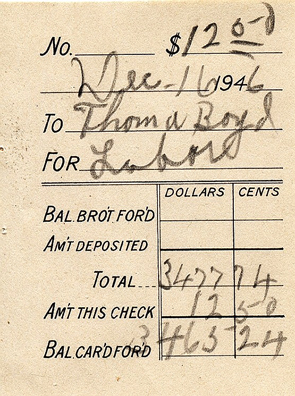 No. $12 50
Dec-16 1946
To Thoma Boyd
For Labor
DOLLARS CENTS
BAL. BRO'T FOR'D
AM'T DEPOSITED
TOTAL... 3477 74
AM'T THIS CHECK 12 50
BAL. CAR'D FOR'D 3465 24